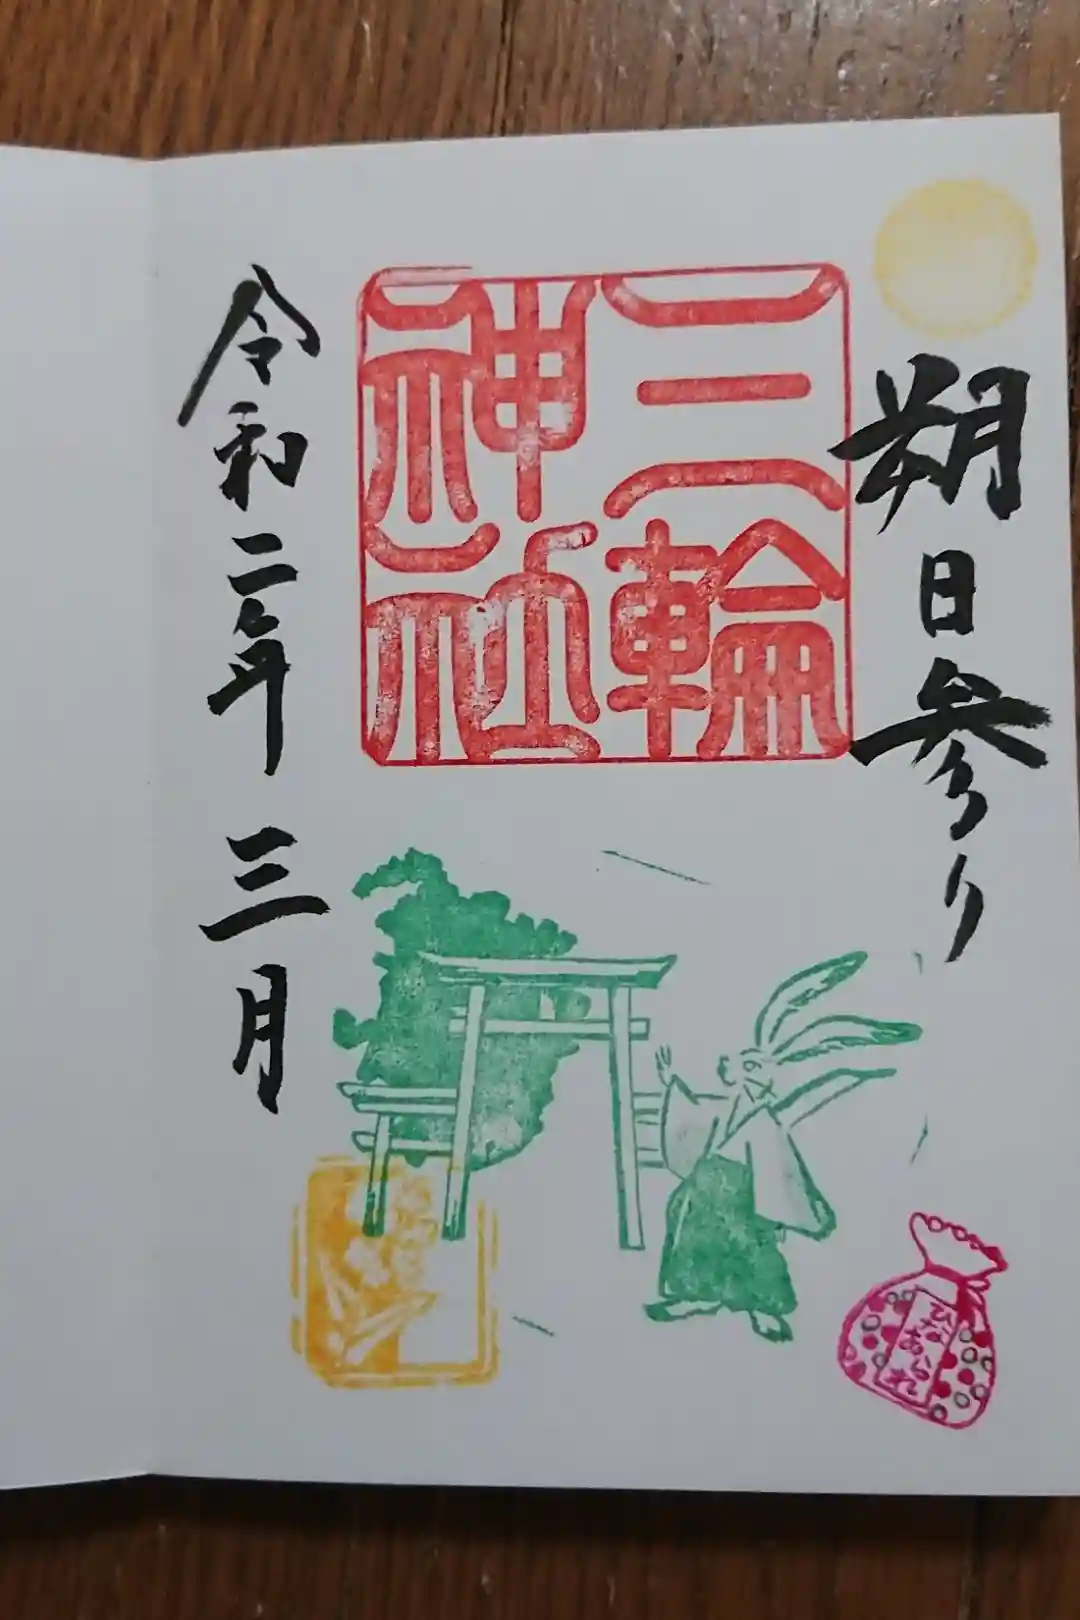 朔日参り
三輪
神社
令和二年 三月
ひなあられ